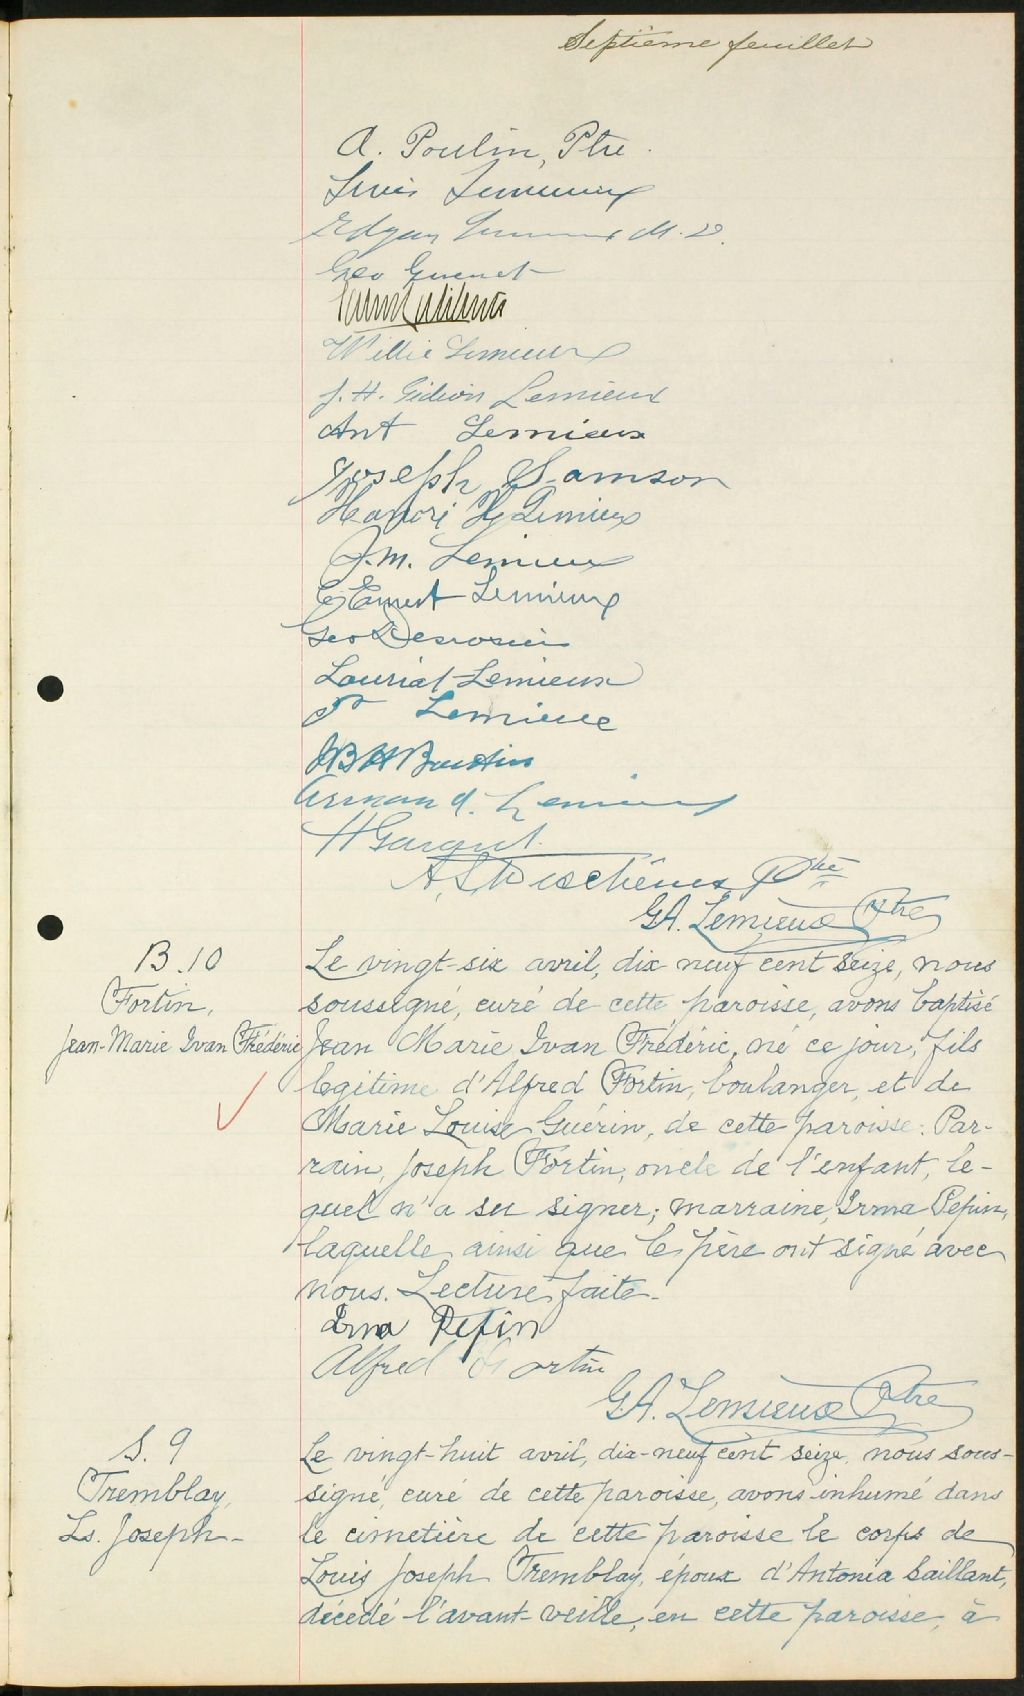 Septième feuillet
A. Poulin, Ptre.
Louis Lemieux
Edgar Lemieux M.D.
Geo Guenet
Willie Lemieux
J. H. Gédéon Lemieux
Ant Lemieux
Joseph Samson
H Lemieux
J. M. Lemieux
E. Ernest Lemieux
Geo Desrosiers
Lauriat Lemieux
Lemieux
Armand. Lemieux
A. Deschênes Ptre
G.A. Lemieux Ptre
B. 10
Fortin,
Jean-Marie Ivan Frédéric
Le vingt-six avril, dix neuf cent seize, nous
soussigné, curé de cette paroisse, avons baptisé
Jean Marie Ivan Frédéric, né ce jour, fils
légitime d'Alfred Fortin, boulanger, et de
Marie Louise Guérin, de cette paroisse. Par-
rain, Joseph Fortin, oncle de l'enfant, le-
quel n'a su signer; marraine, Irma Pepin,
laquelle ainsi que le père ont signé avec
nous. Lecture faite.
Irma Pepin
Alfred Fortin
G.A. Lemieux Ptre
S. 9
Tremblay,
Ls. Joseph-
Le vingt-huit avril, dix-neuf cent seize, nous sous-
signé, curé de cette paroisse, avons inhumé dans
le cimetière de cette paroisse le corps de
Louis Joseph Tremblay, époux d'Antonia Saillant,
décédé l'avant-veille, en cette paroisse, à